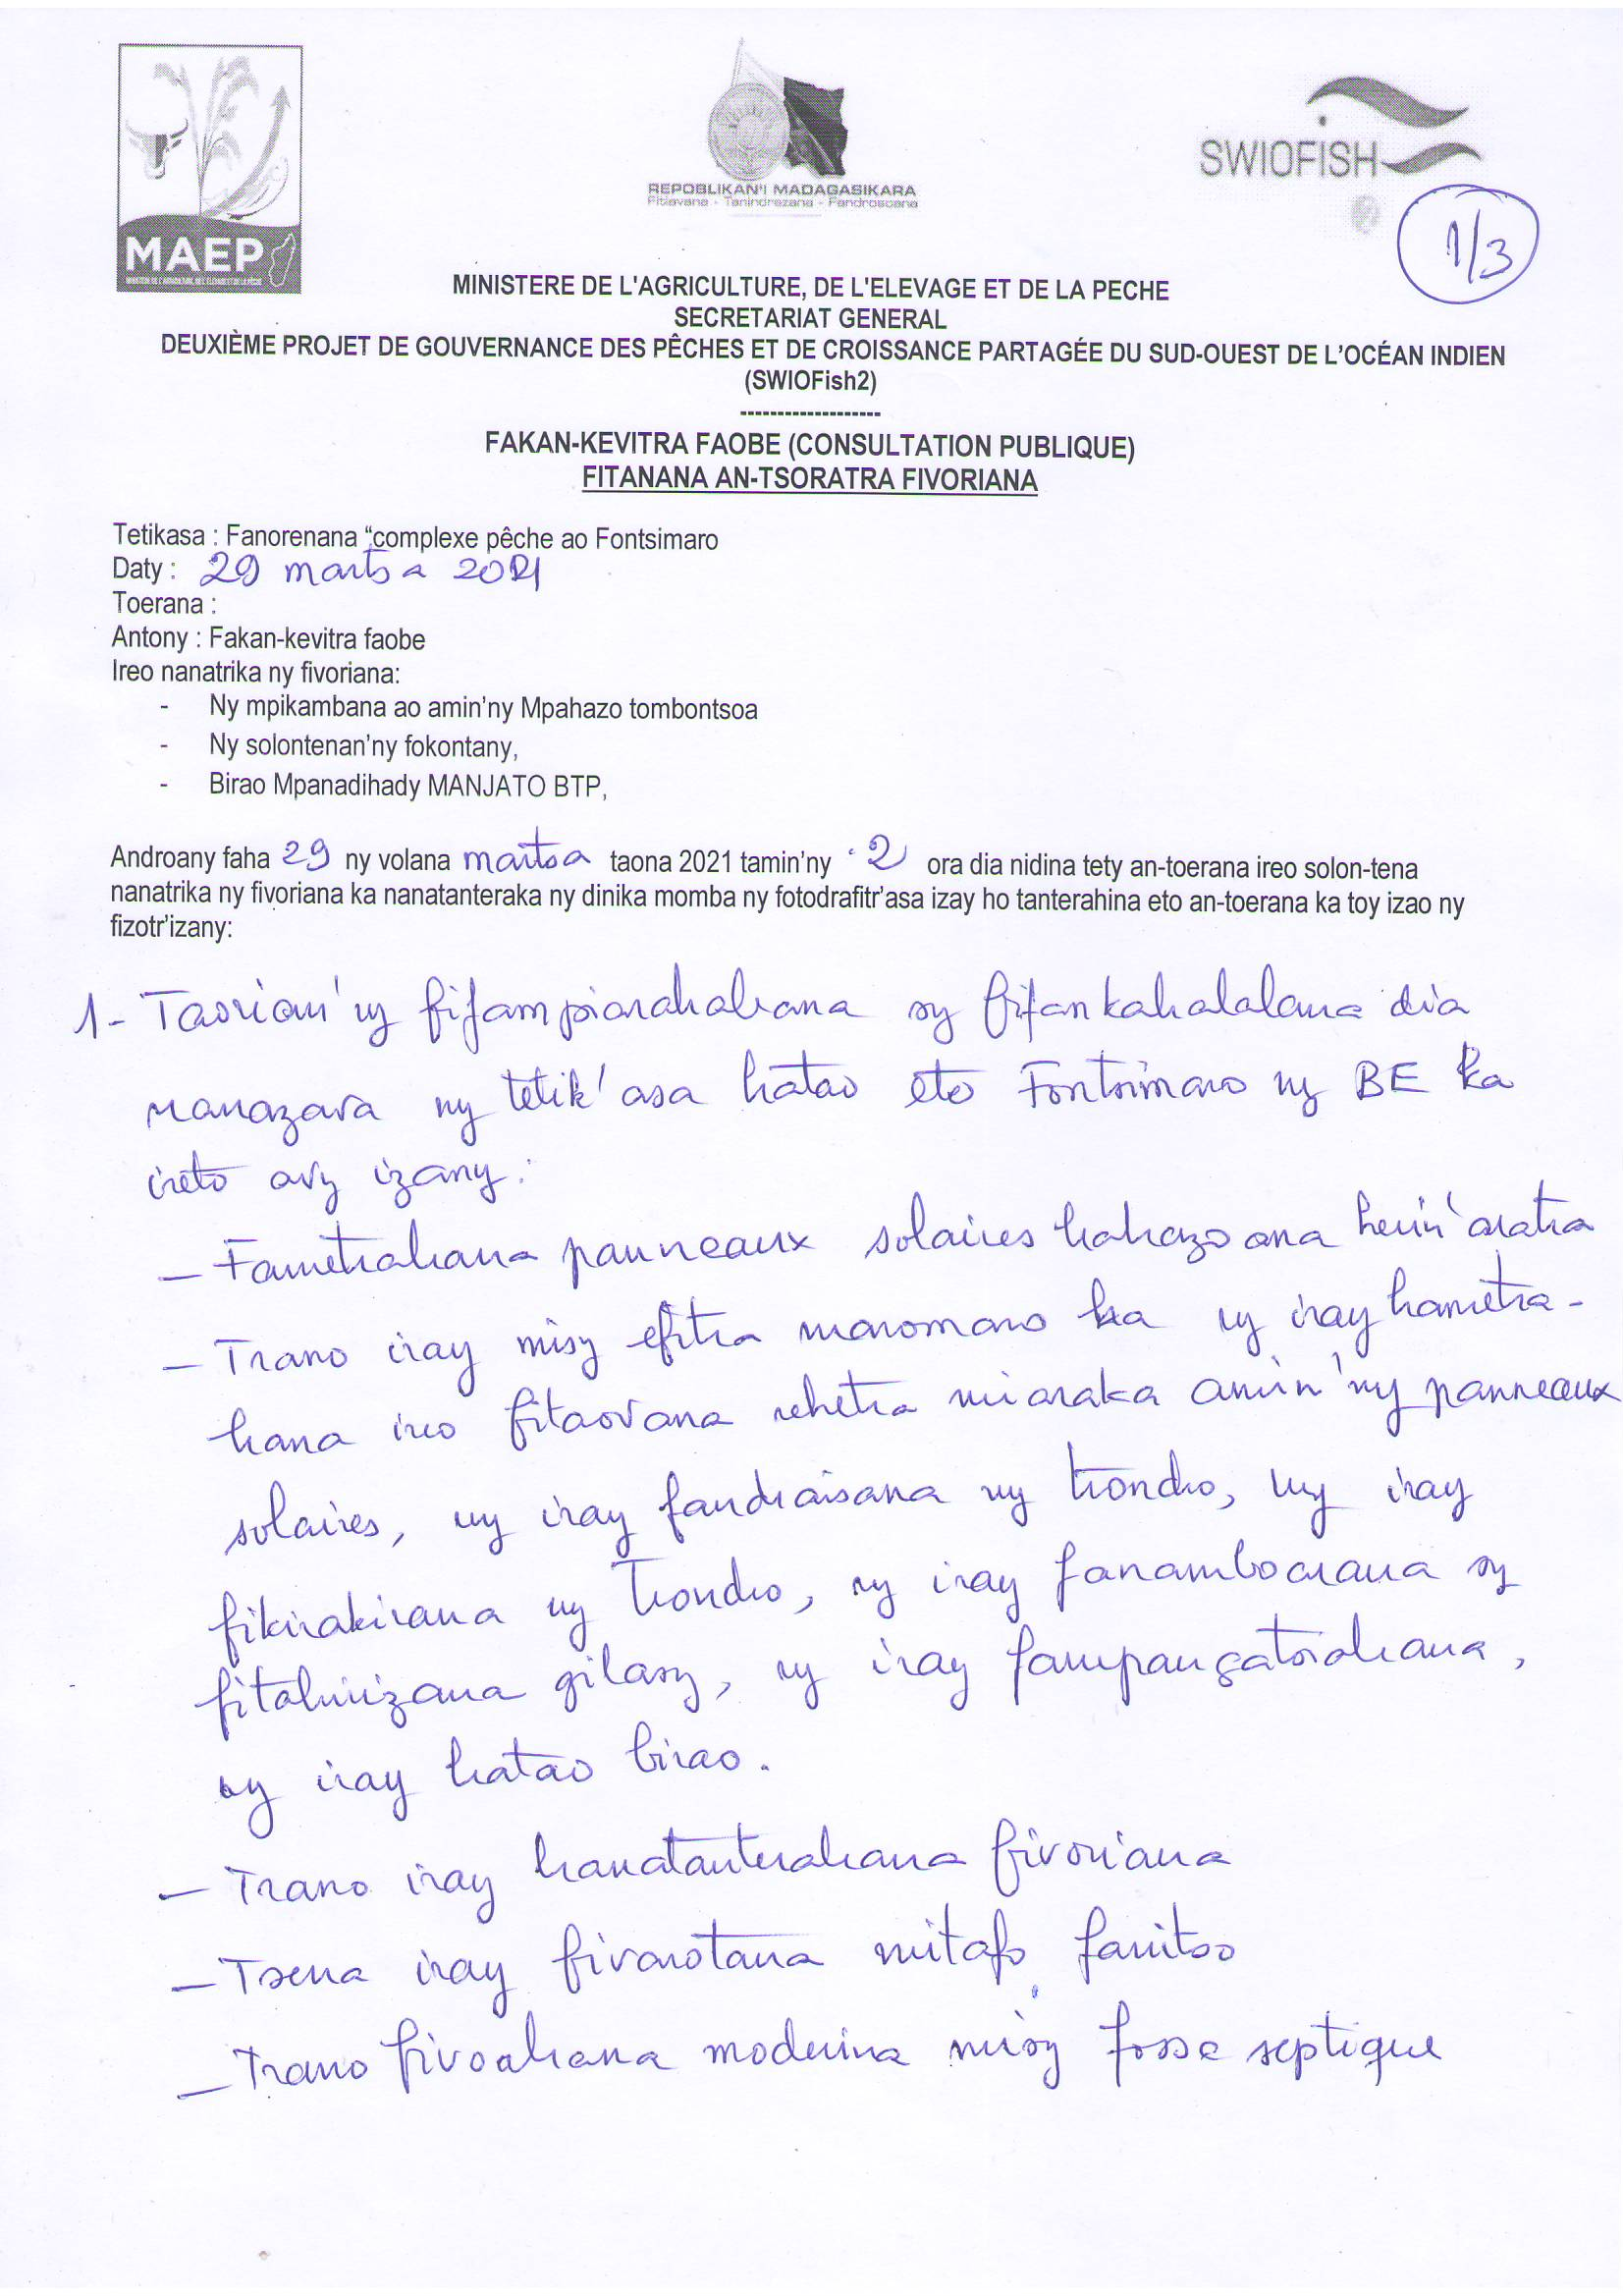 MAEP
REPOBLIKAN'I MADAGASIKARA
Fitiavana - Tanindrazana - Fandrosoana
SWIOFISH
1/3
MINISTERE DE L'AGRICULTURE, DE L'ELEVAGE ET DE LA PECHE
SECRETARIAT GENERAL
DEUXIÈME PROJET DE GOUVERNANCE DES PÊCHES ET DE CROISSANCE PARTAGÉE DU SUD-OUEST DE L'OCÉAN INDIEN
(SWIOFish2)
-------------------
FAKAN-KEVITRA FAOBE (CONSULTATION PUBLIQUE)
FITANANA AN-TSORATRA FIVORIANA
Tetikasa : Fanorenana “complexe pêche ao Fontsimaro
Daty : 29 martsa 2021
Toerana :
Antony : Fakan-kevitra faobe
Ireo nanatrika ny fivoriana:
- Ny mpikambana ao amin'ny Mpahazo tombontsoa
- Ny solontenan'ny fokontany,
- Birao Mpanadihady MANJATO BTP,
Androany faha 29 ny volana martsa taona 2021 tamin'ny 2 ora dia nidina tety an-toerana ireo solon-tena
nanatrika ny fivoriana ka nanatanteraka ny dinika momba ny fotodrafitr'asa izay ho tanterahina eto an-toerana ka toy izao ny
fizotr'izany:
1- Taorian'ny fifampiarahabana sy fifankahalalana dia
nanazava ny tetik'asa hatao eto Fontsimaro ny BE ka
ireto avy izany:
- Fametrahana panneaux solaires hahazoana herin'aratra
- Trano iray misy efitra maromaro ka ny iray hametra-
hana ireo fitaovana rehetra miaraka amin'ny panneaux
solaires, ny iray fandraisana ny trondro, ny iray
fikirakirana ny trondro, ny iray fanamboarana sy
fitahirizana gilasy, ny iray fampangatsiahana,
ny iray hatao birao.
- Trano iray hanatanterahana fivoriana
- Tsena iray fivarotana mitafo fanitso
- Trano fivoahana moderina misy fosse septique